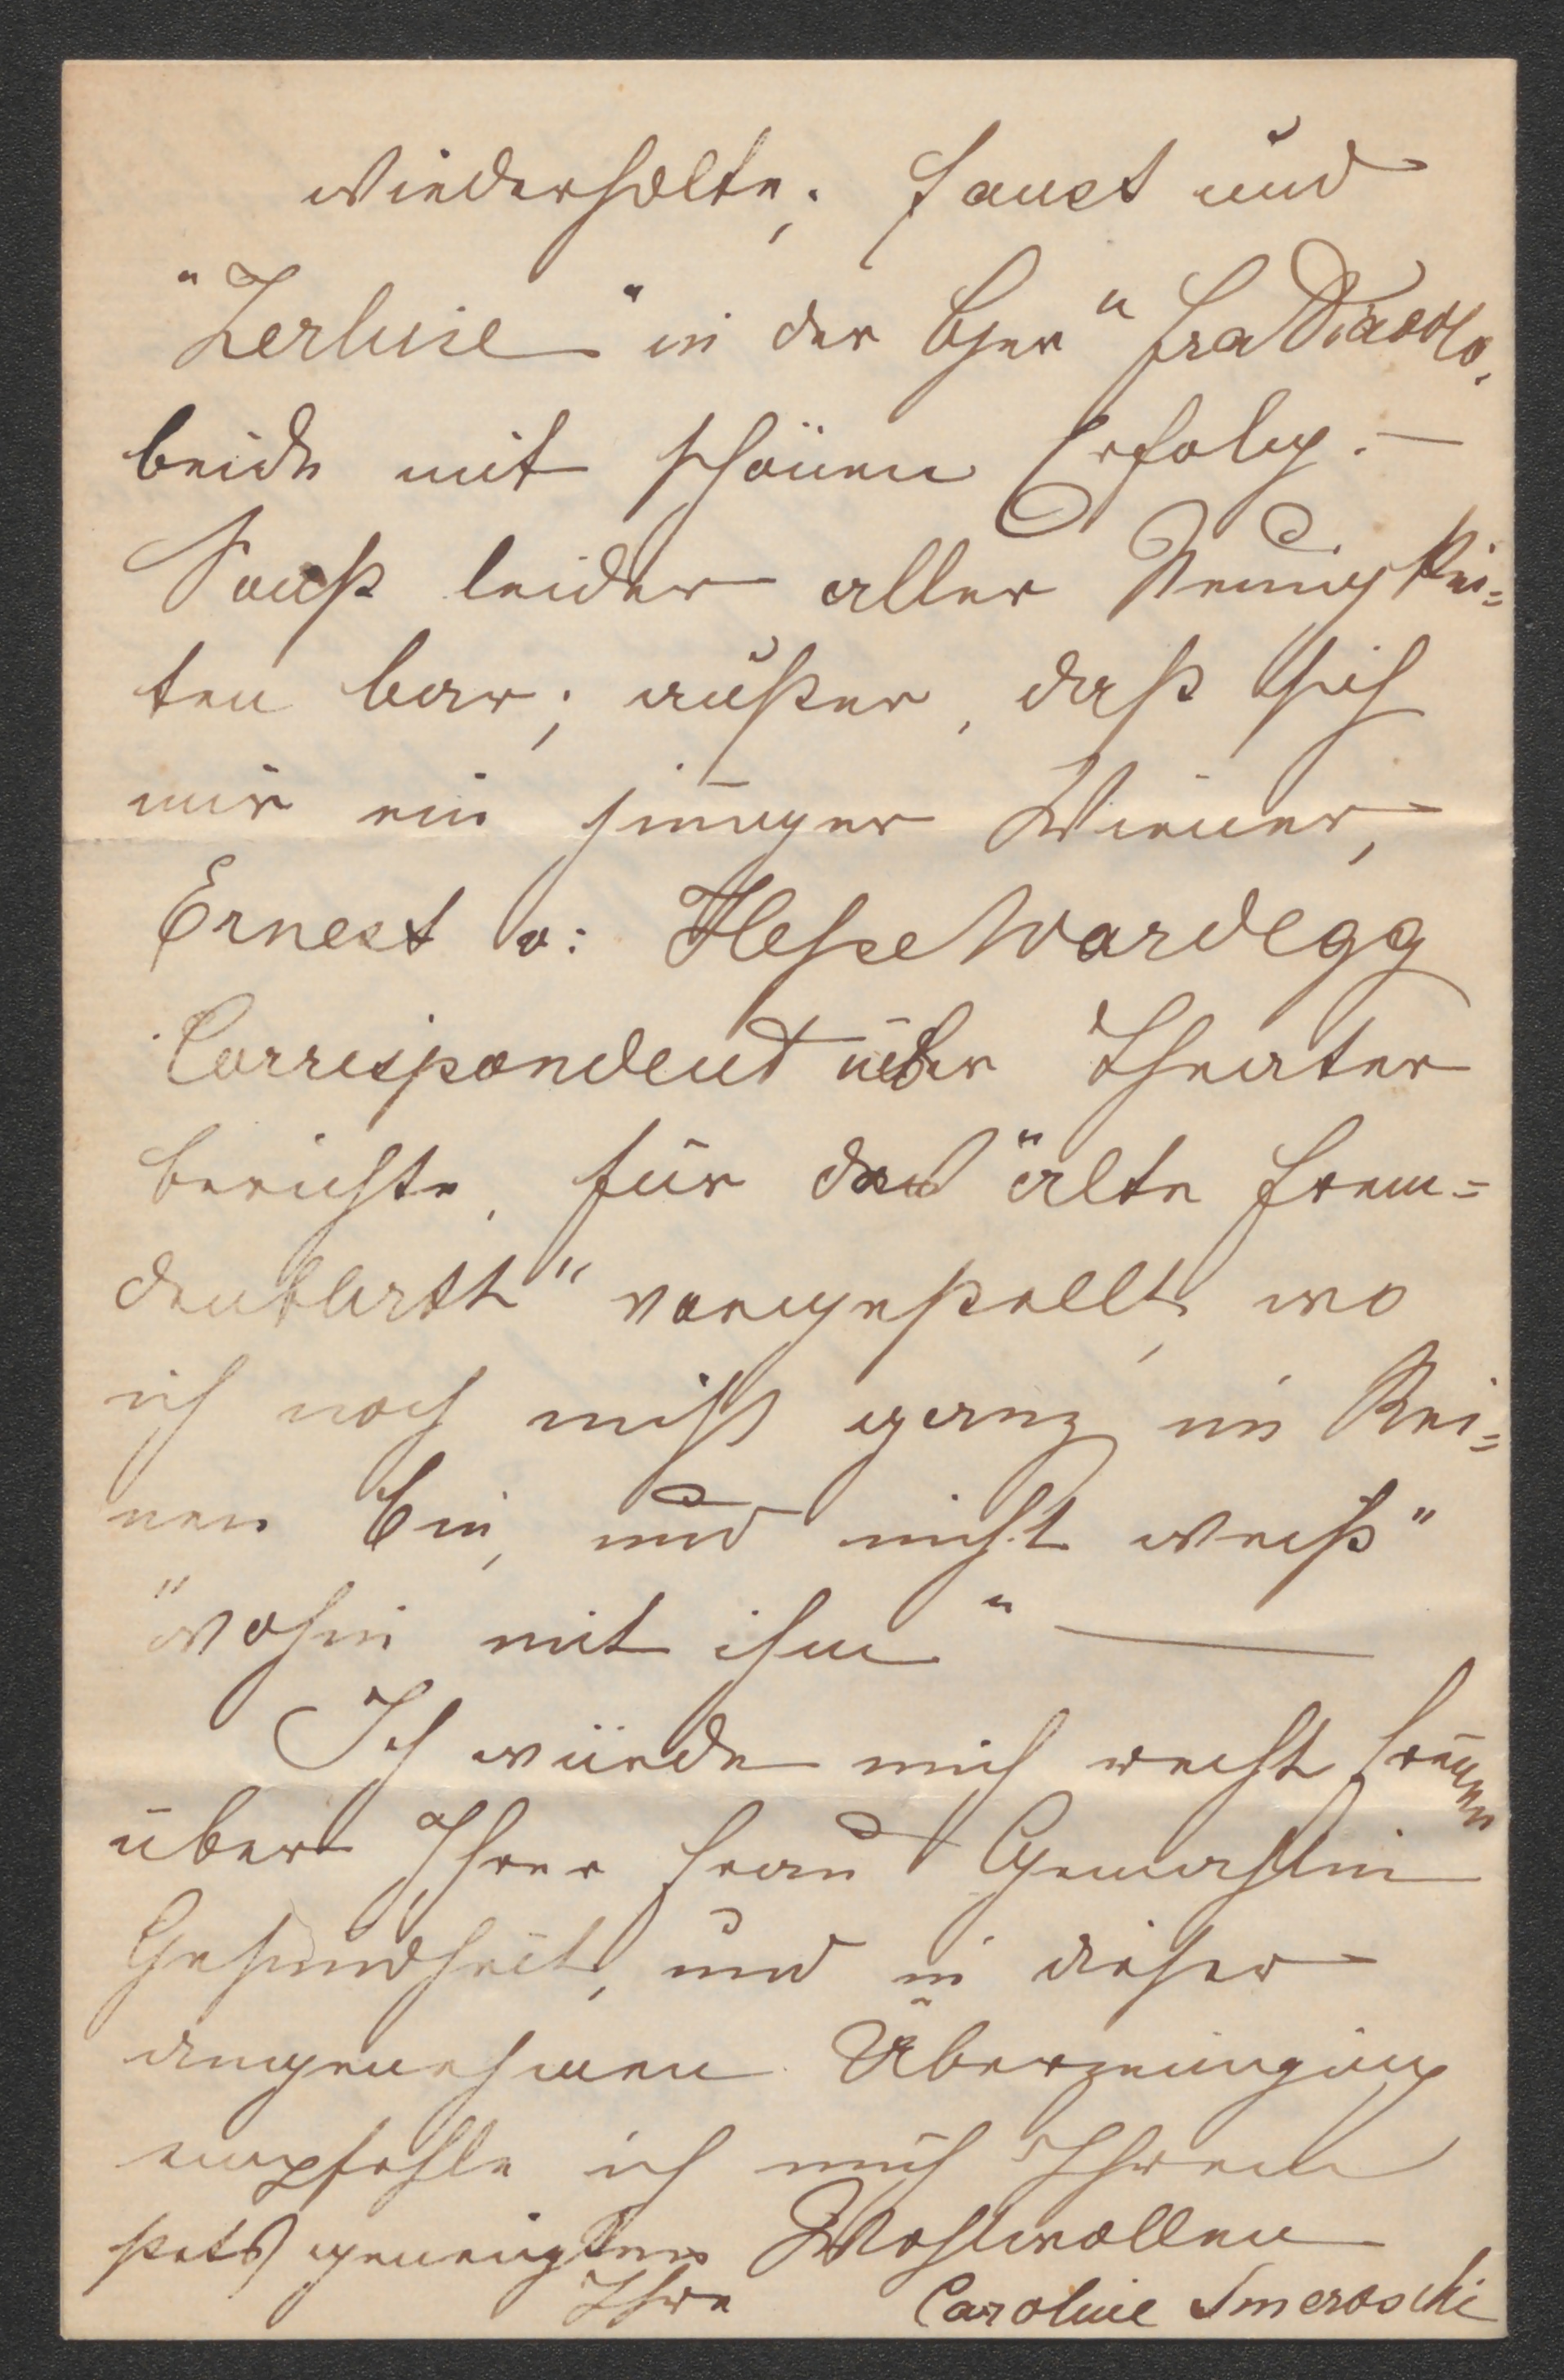 wiederholte; Faust und
"Zerline" in der Oper "Fra Diavolo,
beide mit schönen Erfolg. —
Sonst leider aller Neuigkei=
ten bar; außer, daß sich
mir ein junger Wiener,
Ernest v: Hesse Wardegg
Correspondent über Theater
berichte, für das "alte Frem=
denblatt" vorgestellt, wo
ich noch nicht ganz im Rei=
nen bin, und nicht weiß"
"wohin mit ihm" —
Ich würde mich recht freuen
über Ihrer Frau Gemahlin
Gesundheit, und in dieser
angenehmen Überzeugung
empfehle ich mich Ihrem
stets geneigten Wohlwollen
Ihre Caroline Smeroschi